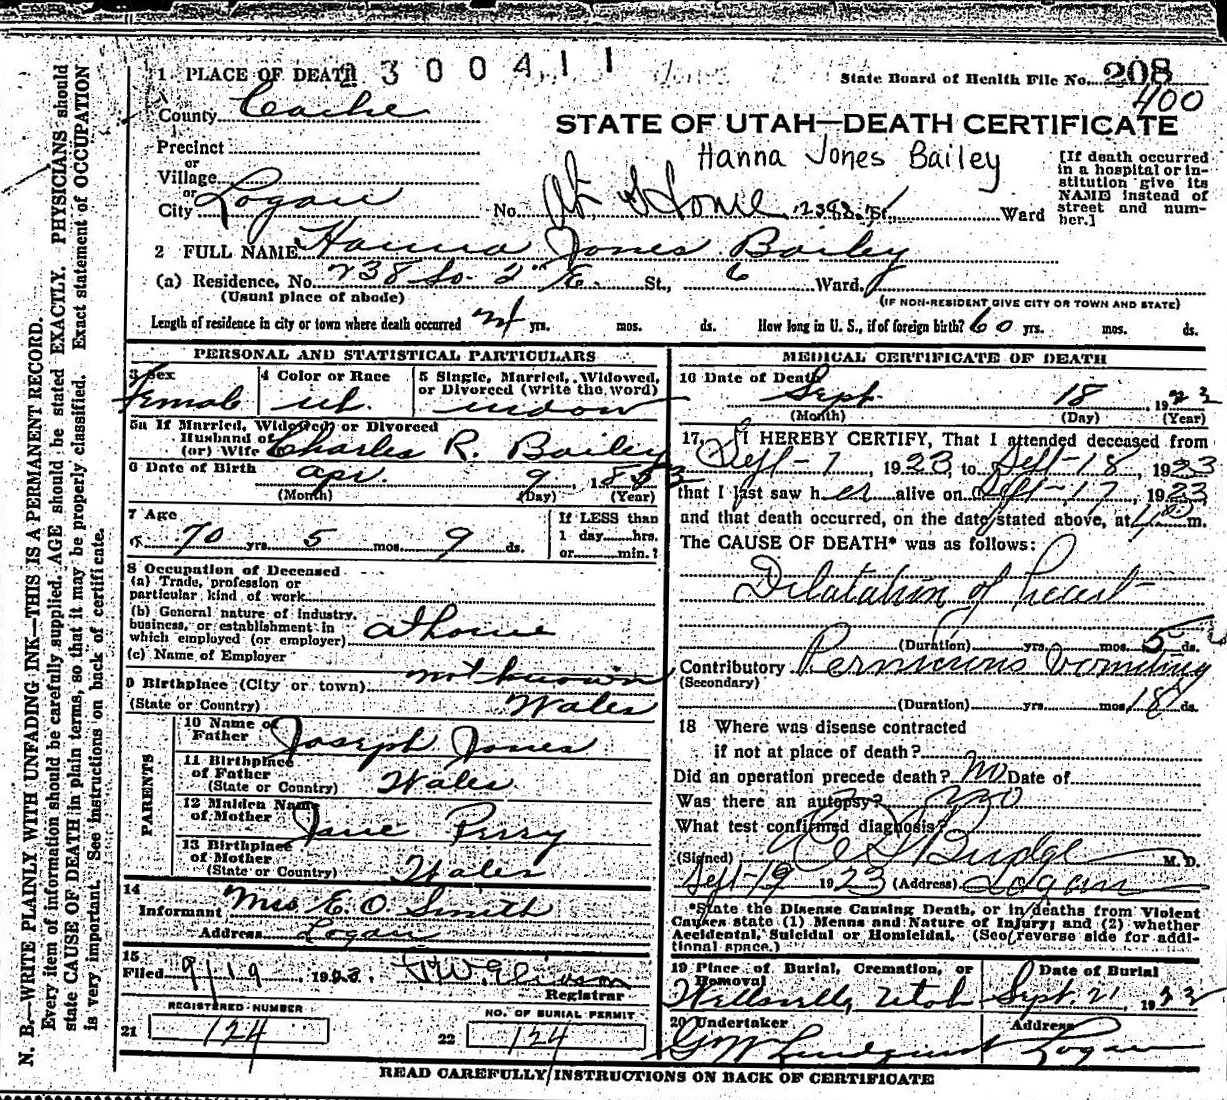 1 PLACE OF DEATH 2300411
State Board of Health File No. 208
400
County Cache
STATE OF UTAH—DEATH CERTIFICATE
Precinct
Hanna Jones Bailey
or
Village
or
City Logan
No. At Home St., Ward
[If death occurred in a hospital or institution give its NAME instead of street and number.]
2 FULL NAME Hanna Jones Bailey
(a) Residence. No. 238 So. 2" E. St., 6 Ward.
(Usual place of abode)
(IF NON-RESIDENT GIVE CITY OR TOWN AND STATE)
Length of residence in city or town where death occurred yrs. mos. ds. How long in U. S., if of foreign birth? 60 yrs. mos. ds.
PERSONAL AND STATISTICAL PARTICULARS
3 Sex Female
4 Color or Race wh.
5 Single, Married, Widowed, or Divorced (write the word) widow
5a If Married, Widowed, or Divorced
Husband of
(or) Wife Charles R. Bailey
6 Date of Birth Apr. 9, 1853
(Month) (Day) (Year)
7 Age
70 yrs. 5 mos. 9 ds.
If LESS than
1 day hrs.
or min.?
8 Occupation of Deceased
(a) Trade, profession or
particular kind of work
(b) General nature of industry,
business, or establishment in
which employed (or employer) at home
(c) Name of Employer
9 Birthplace (City or town) not known
(State or Country) Wales
PARENTS
10 Name of
Father Joseph Jones
11 Birthplace
of Father
(State or Country) Wales
12 Maiden Name
of Mother Jane Perry
13 Birthplace
of Mother
(State or Country) Wales
14
Informant Mrs E. O. Smith
Address Logan
15
Filed 9/19 1923.
Registrar
REGISTERED NUMBER
21 124
NO. OF BURIAL PERMIT
22 124
MEDICAL CERTIFICATE OF DEATH
16 Date of Death Sept. 18 1923
(Month) (Day) (Year)
17, I HEREBY CERTIFY, That I attended deceased from
Sept-7, 1923, to Sept-18, 1923
that I last saw her alive on Sept-17, 1923
and that death occurred, on the date stated above, at m.
The CAUSE OF DEATH* was as follows:
Dilatation of heart
(Duration) yrs. mos. 5 ds.
Contributory Pernicious Vomiting
(Secondary)
(Duration) yrs. mos. 18 ds.
18 Where was disease contracted
if not at place of death?
Did an operation precede death? no Date of
Was there an autopsy? no
What test confirmed diagnosis?
(Signed) Budge M. D.
Sept-19 1923 (Address) Logan
*State the Disease Causing Death, or in deaths from Violent
Causes state (1) Means and Nature of Injury; and (2) whether
Accidental, Suicidal or Homicidal. (See reverse side for additional space.)
19 Place of Burial, Cremation, or
Removal
Wellsville, Utah
Date of Burial
Sept. 21, 1923
20 Undertaker
G W Lindquist
Address
Logan
READ CAREFULLY INSTRUCTIONS ON BACK OF CERTIFICATE
N. B.—WRITE PLAINLY WITH UNFADING INK—THIS IS A PERMANENT RECORD.
Every item of information should be carefully supplied. AGE should be stated EXACTLY. PHYSICIANS should
state CAUSE OF DEATH in plain terms, so that it may be properly classified. Exact statement of OCCUPATION
is very important. See instructions on back of certificate.